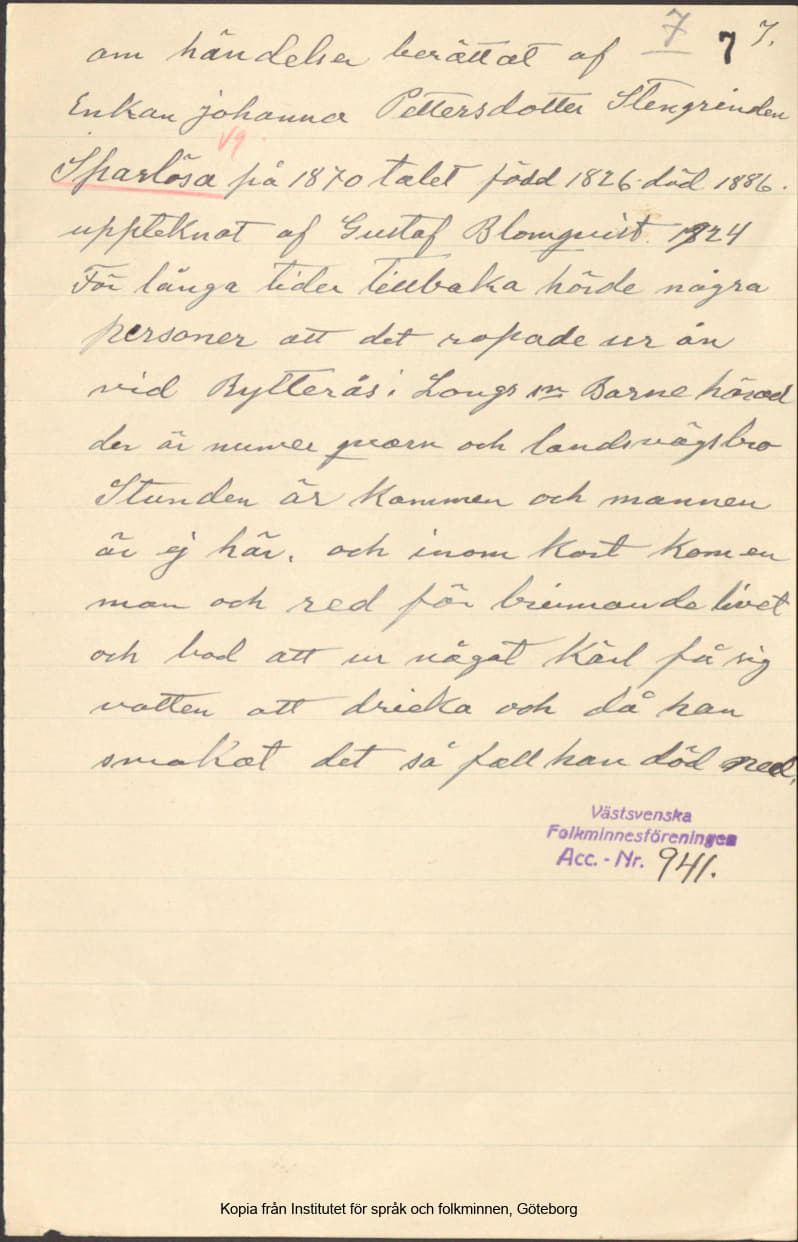 7 7 7.
om händelser berättat af
Enkan johanna Pettersdotter Stengrinden
Vg
Sparlösa på 1870 talet född 1826 död 1886.
uppteknat af Gustaf Blomquist 1924
För långa tider tillbaka hörde några
personer att det ropade ur ån
vid Bytterås i Longs sn Barne härad
der är numer qvarn och landsvägsbro
Stunden är kommen och mannen
är ej här, och inom kort kom en
man och red för brinnande livet
och bad att ur något kärl få sig
vatten att dricka och då han
smakat det så fall han död ned.
Västsvenska
Folkminnesföreningen
Acc. - Nr. 941.
Kopia från Institutet för språk och folkminnen, Göteborg